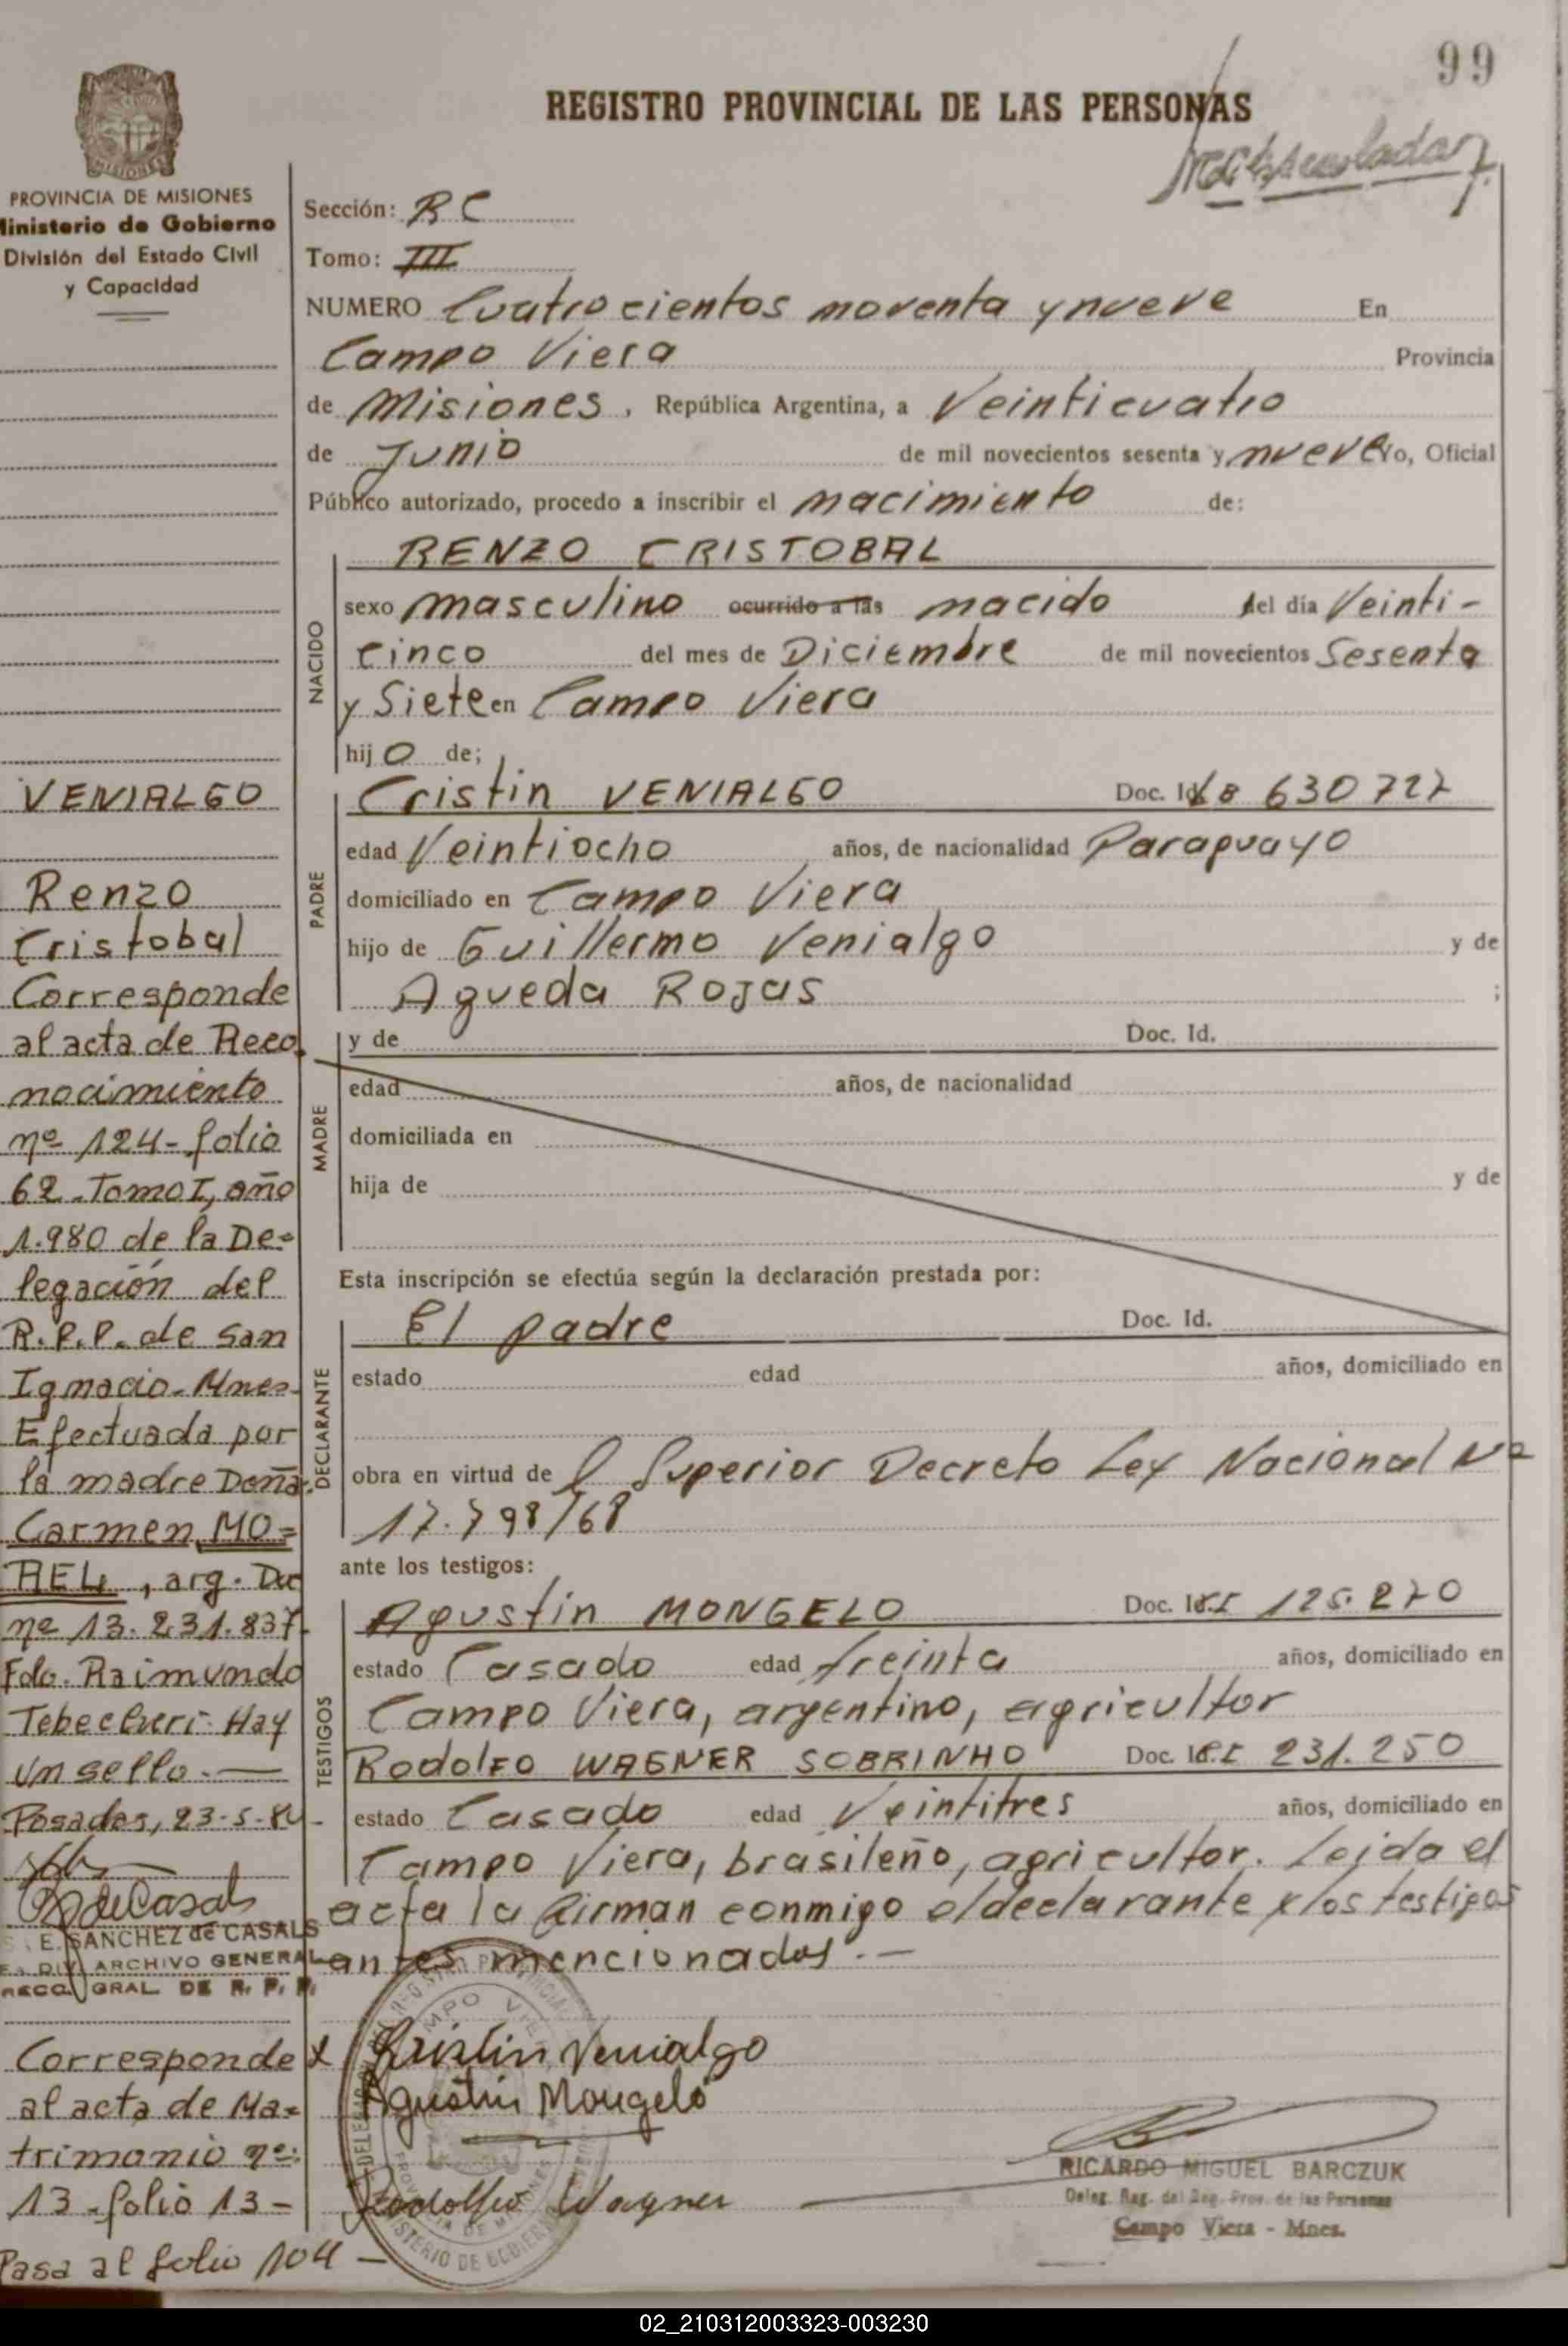 99
REGISTRO PROVINCIAL DE LAS PERSONAS
Matriculado
MISIONES
PROVINCIA DE MISIONES
Ministerio de Gobierno
División del Estado Civil
y Capacidad
Sección: R C
Tomo: III
NUMERO Cuatrocientos noventa y nueve En
Campo Viera Provincia
de Misiones, República Argentina, a Veinticuatro
de Junio de mil novecientos sesenta y nueve Yo, Oficial
Público autorizado, procedo a inscribir el nacimiento de:
RENZO CRISTOBAL
NACIDO
sexo masculino ocurrido a las nacido del día Veinti-
cinco del mes de Diciembre de mil novecientos Sesenta
y Siete en Campo Viera
hijo de;
PADRE
Cristin VENIALGO Doc. Id. 630727
edad Veintiocho años, de nacionalidad Paraguayo
domiciliado en Campo Viera
hijo de Guillermo Venialgo y de
Agueda Rojas ;
MADRE
y de Doc. Id.
edad años, de nacionalidad
domiciliada en
hija de y de
Esta inscripción se efectúa según la declaración prestada por:
DECLARANTE
El padre Doc. Id.
estado edad años, domiciliado en
obra en virtud de l Superior Decreto Ley Nacional Nº
17.798/68
ante los testigos:
TESTIGOS
Agustin MONGELO Doc. Id. CI 125.270
estado Casado edad treinta años, domiciliado en
Campo Viera, argentino, agricultor
Rodolfo WAGNER SOBRINHO Doc. Id. CI 231.250
estado Casado edad Veintitres años, domiciliado en
Campo Viera, brasileño, agricultor. Leida el
acta la firman conmigo el declarante y los testigos
antes mencionados.—
Cristin Venialgo
Agustin Mongeló
Rodolfo Wagner
RICARDO MIGUEL BARCZUK
Deleg. Reg. del Reg. Prov. de las Personas
Campo Viera - Mnes.
VENIALGO
Renzo
Cristobal
Corresponde
al acta de Reco
nocimiento
nº 124-folio
62-Tomo I, año
1.980 de la De=
legación del
R.P.P. de San
Ignacio-Mnes-
Efectuada por
la madre Doña
Carmen MO=
REL, arg. Du
nº 13.231.837.
Fdo. Raimundo
Hay
un sello.—
Posadas, 23-5-84-
S. E. SANCHEZ de CASALS
DIV. ARCHIVO GENERAL
GRAL DE R. P. P.
Corresponde
al acta de Ma=
trimonio nº:
13-folio 13-
Pasa al folio 104 —
02_210312003323-003230